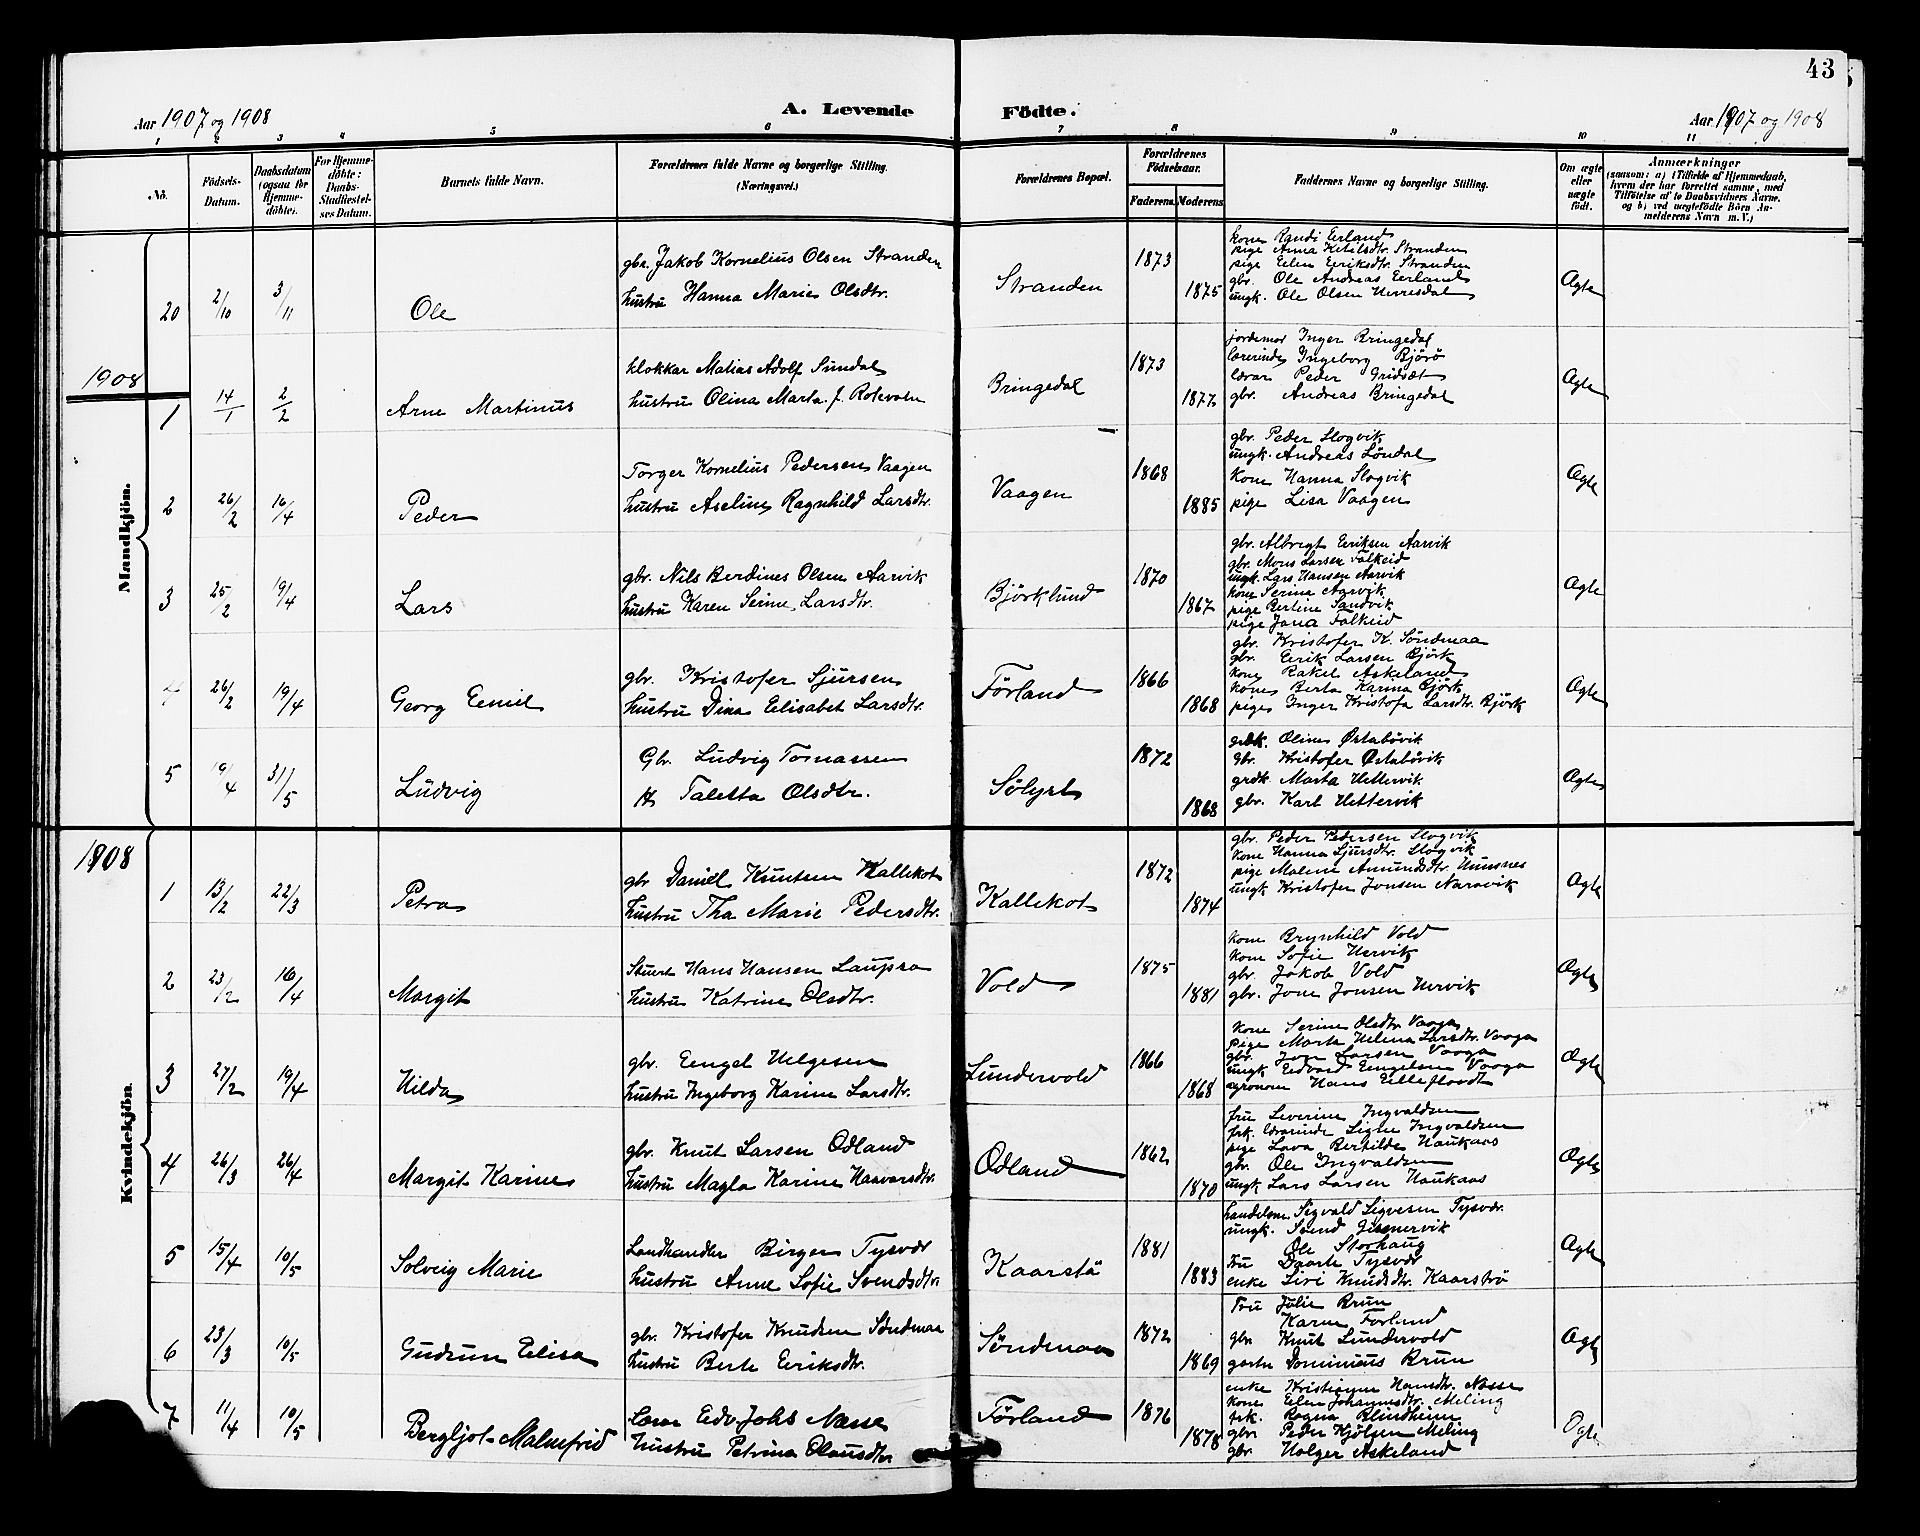 43
Aar 1907 og 1908
A. Levende Födte.
Aar 1907 og 1908
1 2 3 4 5 6 7 8 9 10 11
No.
Födsels-Datum.
Daabsdatum (ogsaa for Hjemmedöbte).
For Hjemmedöbte: Daabs-Stadfæstelses Datum.
Barnets fulde Navn.
Forældrenes fulde Navne og borgerlige Stilling. (Næringsvei.)
Forældrenes Bopæl.
Forældrenes Födselsaar.
Faderens. Moderens.
Faddernes Navne og borgerlige Stilling.
Om ægte eller uægte födt.
Anmærkninger
(saasom: a) i Tilfælde af Hjemmedaab, hvem der har forrettet samme, med Tilföielse af to Daabsvidners Navne. og b) ved uægtefödte Börn Anmelderens Navn m. V.)
Mandkjön.
20 2/10 3/11 Ole
gbr. Jakob Kornelius Olsen Stranden
hustru Hanna Marie Olsdtr.
Stranden 1873 1875
kone Randi Eerland
pige Anna Ketilsdtr. Stranden
pige Elen Eiriksdtr. Stranden
gbr. Ole Andreas Eerland
ungk. Ole Olsen
Ægte
1908
1 14/1 2/2 Arne Martinus
klokkar Matias Adolf Sundal
hustru Olina Marta f. Rotevatn
Bringedal 1873 1877
jordemor Inger Bringedal
lærerinde Ingeborg Bjørø
lærar Peder Gridsæt
gbr. Andreas Bringedal
Ægte
2 26/2 16/4 Peder
Torger Kornelius Pedersen Vaagen
hustru Aseline Ragnhild Larsdtr.
Vaagen 1868 1885
gbr. Peder Slogvik
ungk. Andreas Løndal
kone Hanna Slogvik
pige Lisa Vaagen
Ægte
3 25/2 19/4 Lars
gbr. Nils Berdines Olsen Aarvik
hustru Karen Serine Larsdtr.
Björklund 1870 1867
gbr. Albregt Eriksen Aarvik
gbr. Mons Larsen Falkeid
ungk. Lars Hansen Aarvik
kone Serine Aarvik
pige Bertine Sandvik
pige Jana Falkeid
Ægte
4 26/2 19/4 Georg Eemil
gbr. Kristofer Sjursen
hustru Dina Elisabet Larsdtr.
Förland 1866 1868
gbr. Kristofer K. Söndenaa
gbr. Eirik Larsen Björk
kone Rakel Askeland
kone Berta Karina Björk
pige Inger Kristofa Larsdtr. Björk
Ægte
5 19/4 31/5 Ludvig
Gbr. Ludvig Tomassen
H Taletta Olsdtr.
Sölyst 1872 1868
grdk. Oline Østabövik
Gbr. Kristofer Østabövik
grdk. Marta Hettervik
gbr. Karl Hettervik
Ægte
1908
Kvindekjön.
1 13/2 22/3 Petra
gbr Daniel Knutsen Kallekot
hustru Tha Marie Pedersdtr.
Kallekot 1872 1874
gbr. Peder Pedersen Slogvik
kone Hanna Sjursdtr. Slogvik
pige Malene Amundsdtr. Humsnes
ungk Kristofer Jonsen Naravik
Ægte
2 23/2 16/4 Margit
Stuert Hans Hansen Laupsa
hustru Katrine Olsdtr.
Vold 1875 1881
kone Brynhild Vold
kone Sofie Hervik
gbr. Jakob Vold
gbr. Jone Jonsen Hervik
Ægte
3 27/2 19/4 Hilda
gbr. Eengel Helgesen
hustru Ingeborg Karine Larsdtr.
Lundervold 1866 1868
kone Serine Olsdtr. Vaaga
Pige Marta Helena Larsdtr. Vaaga
gbr. Jon Larsen Vaaga
ungk Edvard Eengelsen Vaaga
agronom Hans Elleflaadt
Ægte
4 26/3 26/4 Margit Karine
gbr. Knut Larsen Ødland
hustru Magla Karine Haavarsdtr.
Ødland 1862 1870
fru Severine Ingvaldsen
frk. lærarinde Signe Ingvaldsen
pige Lava Bertilde Haukaas
gbr. Ole Ingvaldsen
ungk Lars Larsen Haukaas
Ægte
5 15/4 10/5 Solveig Marie
Landhandler Birger Tysvær
hustru Anne Sofie Svendsdtr
Kaarstö 1881 1883
handelsm Sigvald Sigvesen Tysvær.
ungk. Svend
Ole Storhaug
Fru Daarte Tysvær
enke Siri Knudsdtr. Kaarstö
Ægte
6 23/3 10/5 Gudrun Elisa
gbr. Kristofer Knudsen Söndenaa
hustru Berte Eiriksdtr.
Söndenaa 1872 1869
Fru Julie Brun
Karen Forland
gbr Knut Lundervold
gartn Dominicus Brun
Ægte
7 11/4 10/5 Bergljot Malmfrid
Lærer Edv. Johs Næsse
hustru Petrina Olausdtr
Förland 1876 1878
enke Kristianne Hansdtr. Næsse
kone Elen Johannesdtr. Meling
frk. Ragna Blindheim
gbr Peder Kjölsen Meling
gbr Holger Askeland
Ægte